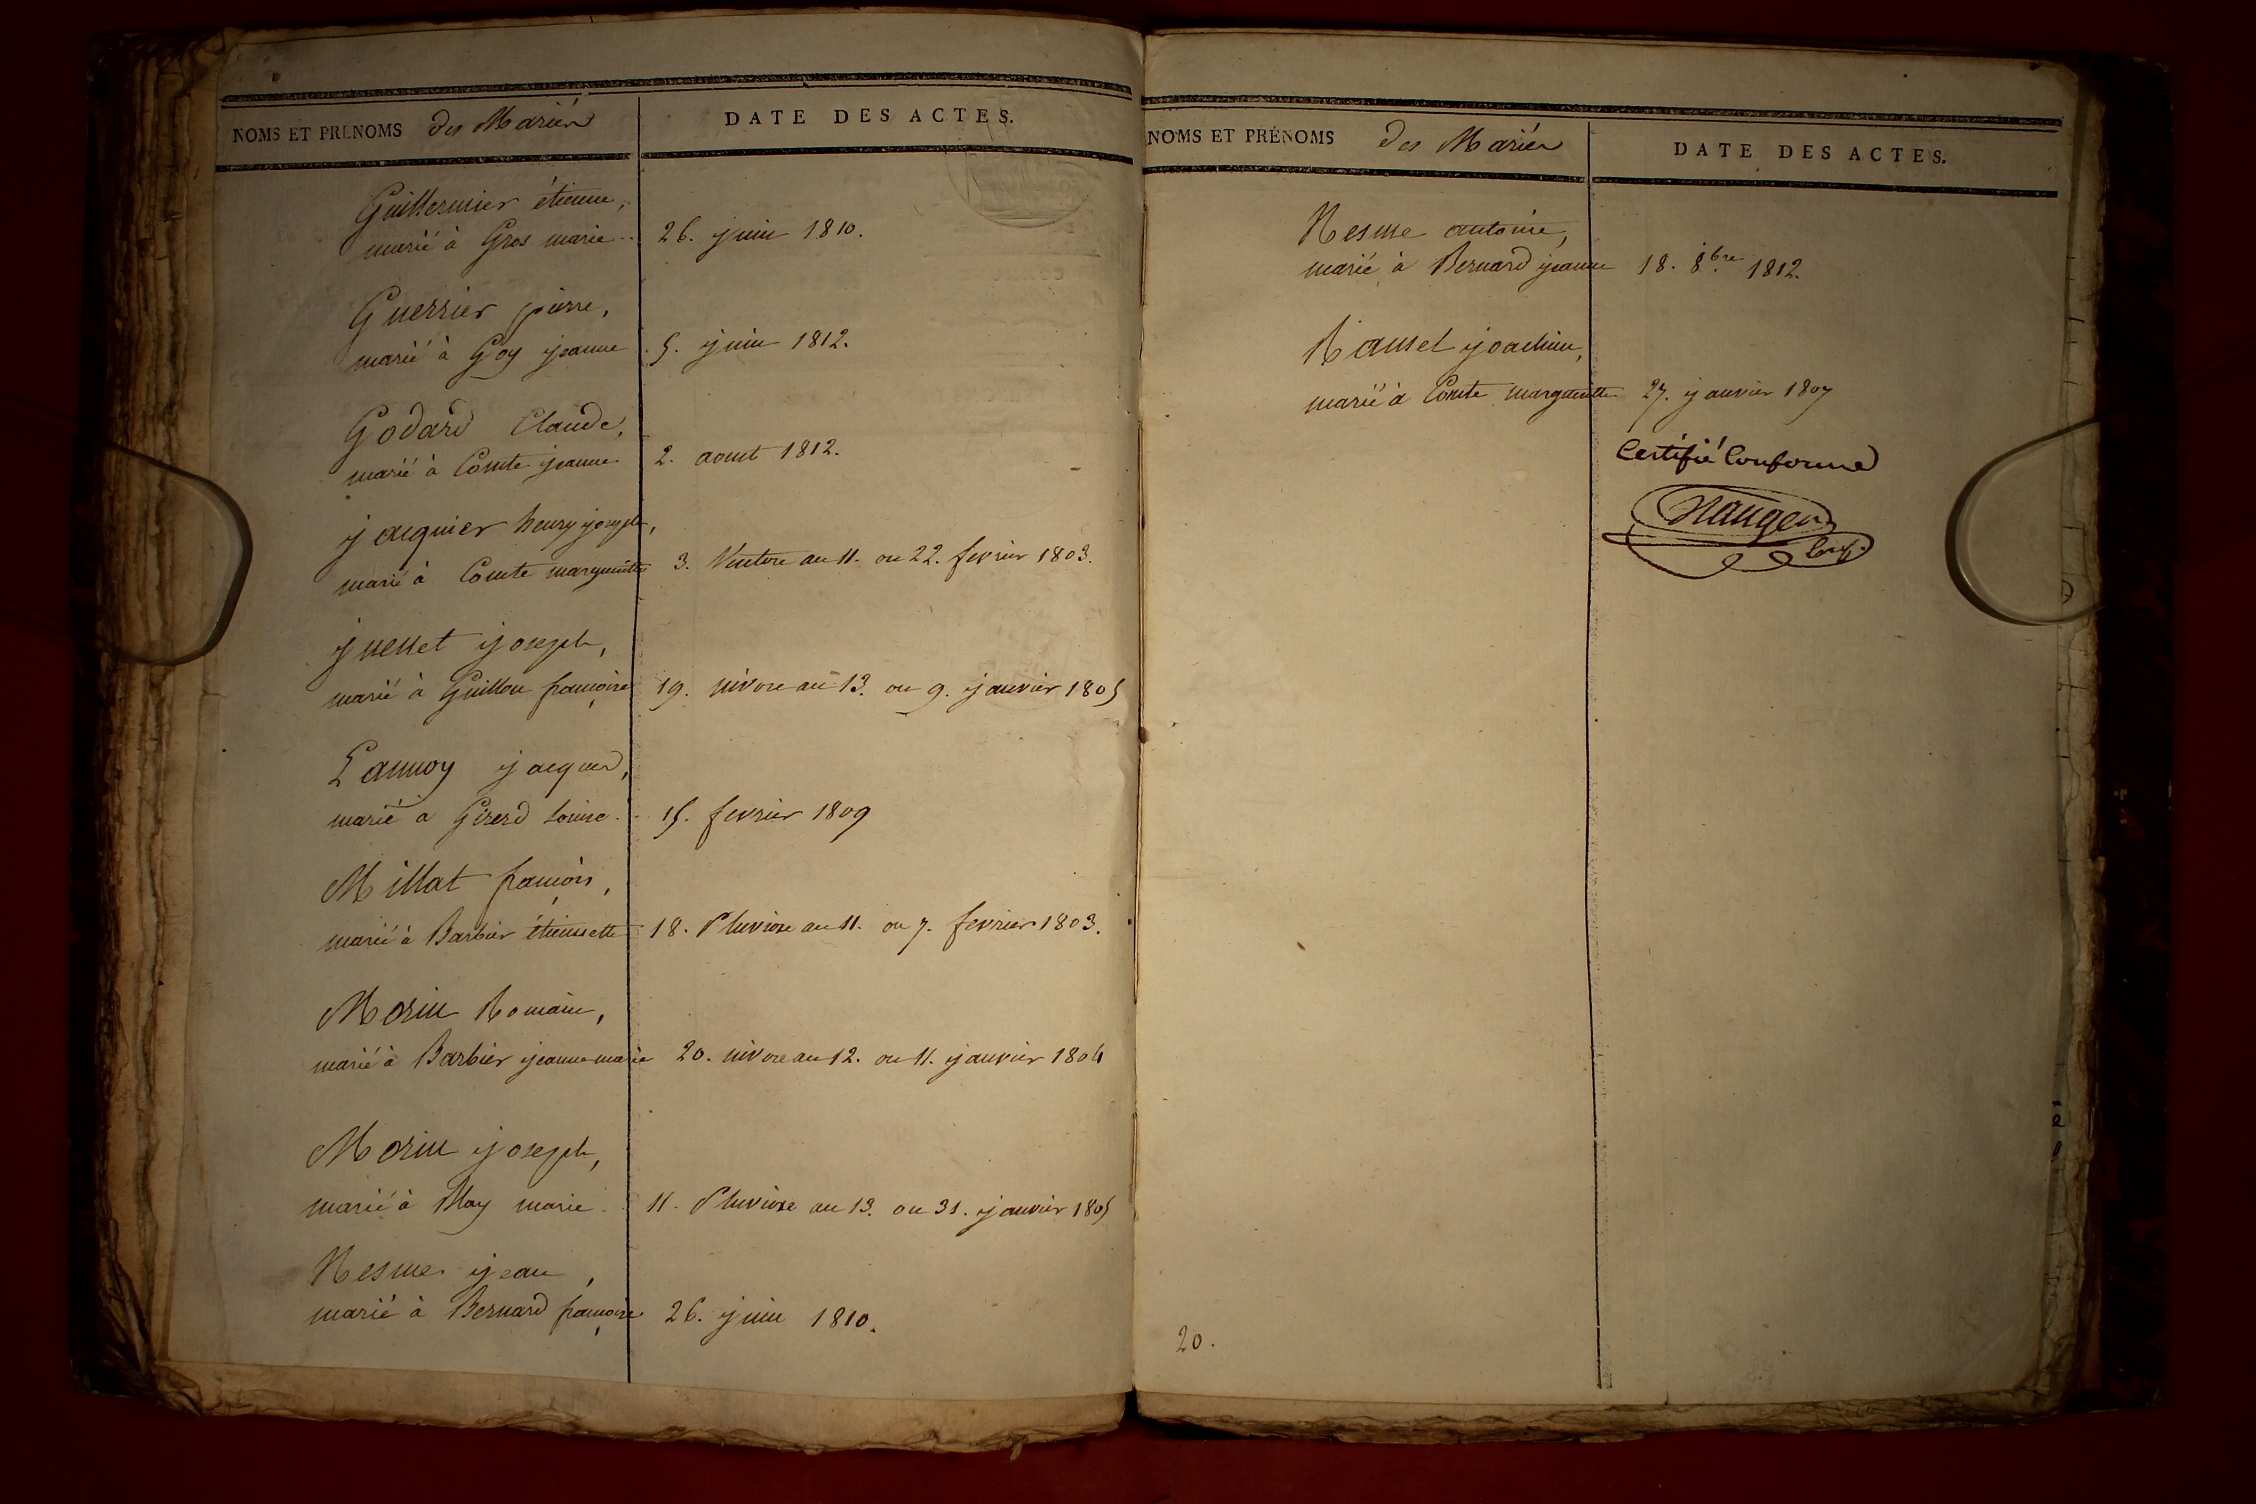 NOMS ET PRENOMS des Mariés
DATE DES ACTES.
Guillermier étienne,
marié à Gros marie .. 26. juin 1810.
Guerrier pierre,
marié à Goy jeanne . 5. juin 1812.
Godard Claude,
marié à Comte jeanne 2. aout 1812.
jacquier henry joseph,
marié à Comte margueritte 3. Ventose an 11. ou 22. fevrier 1803.
joseph,
marié à Guillon françoise 19. nivose an 13. ou 9. janvier 1805
Lannoy jacques,
marié à Girerd Louise .. 15. fevrier 1809
Millat françois,
marié à Barbier étiennette 18. Pluviose an 11. ou 7. fevrier 1803.
Morin Romain,
marié à Barbier jeanne marie 20. nivose an 12. ou 11. janvier 1804
Morin joseph,
marié à May marie .. 11. Pluviose an 13. ou 31. janvier 1805
Nesme jean,
marié à Bernard françoise 26. juin 1810.
NOMS ET PRÉNOMS des Mariés
DATE DES ACTES.
Nesme antoine,
marié à Bernard jeanne 18. 8bre 1812.
Ramel joachim,
marié à Comte margueritte 27. janvier 1807
Certifié Conforme
20.